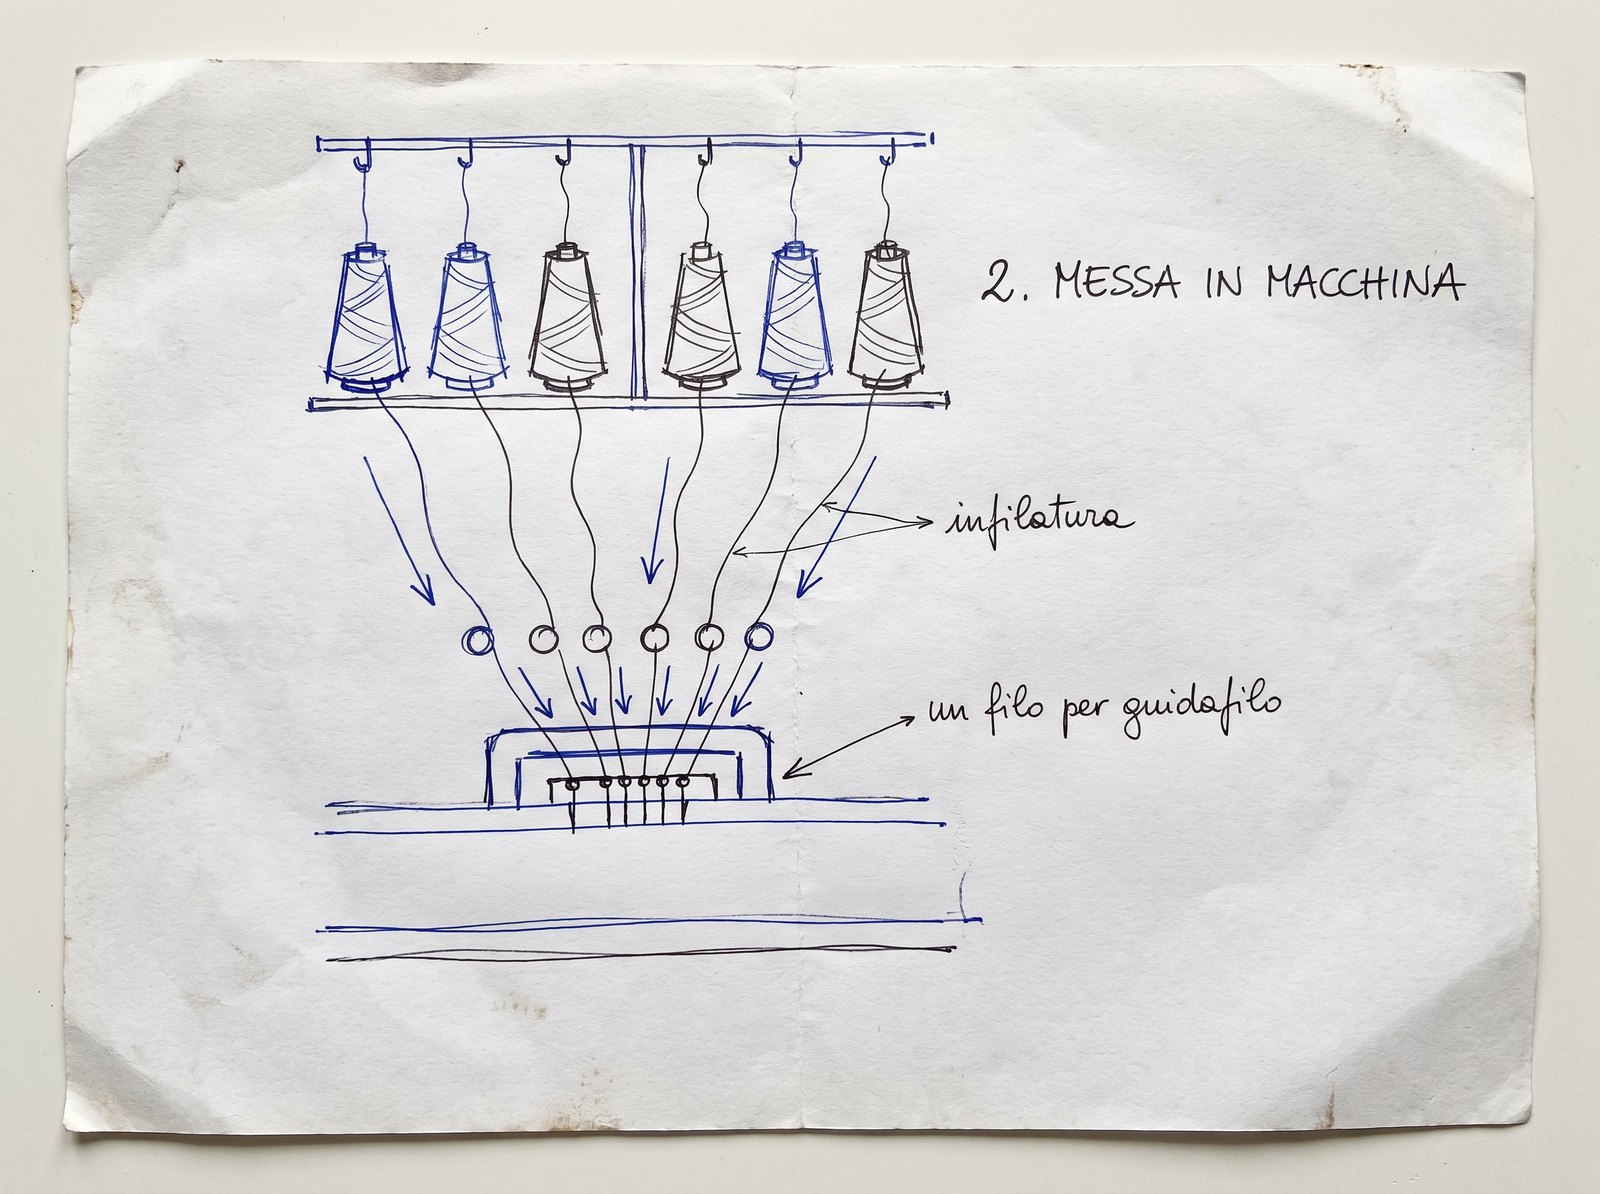 2. MESSA IN MACCHINA
infilatura
un filo per guidafilo